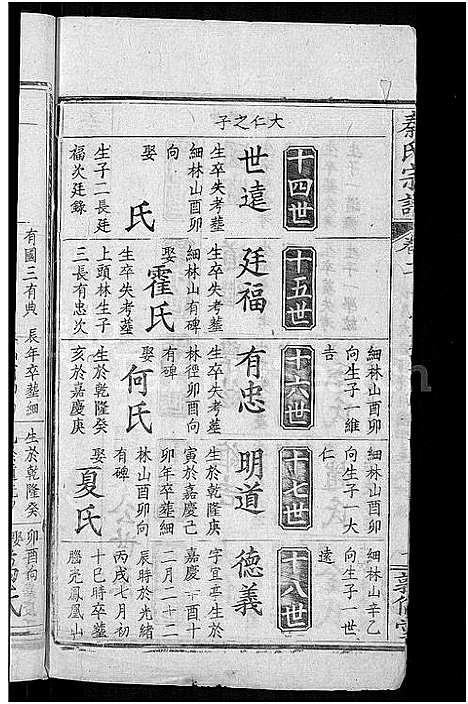 秦氏宗譜
卷二
大仁之子
十四世
世遠
生卒失考葬
細林山酉卯
向
娶
氏
生子二長廷
福次廷錄
十五世
廷福
生卒失考葬
細林山有碑
娶霍氏
生卒失考葬
上頭林生子
三長有忠次
細林山酉卯
向生子一維
吉
十六世
有忠
生卒失考葬
林徑卯酉向
有碑
娶何氏
生於乾隆癸
亥於嘉慶庚
細林山酉卯
向生子一大
仁
十七世
明道
生於乾隆庚
寅於嘉慶己
卯年卒葬細
林山酉卯向
有碑
夏氏
細林山辛乙
向生子一世
遠
十八世
德義
字宜亭生於
嘉慶酉十
二月二十二
辰時於光緒
丙戌七月初
十巳時卒葬
腦壳鳳凰山
敦倫堂
有國三有典
長年卒葬細
生於乾隆癸
卯酉向